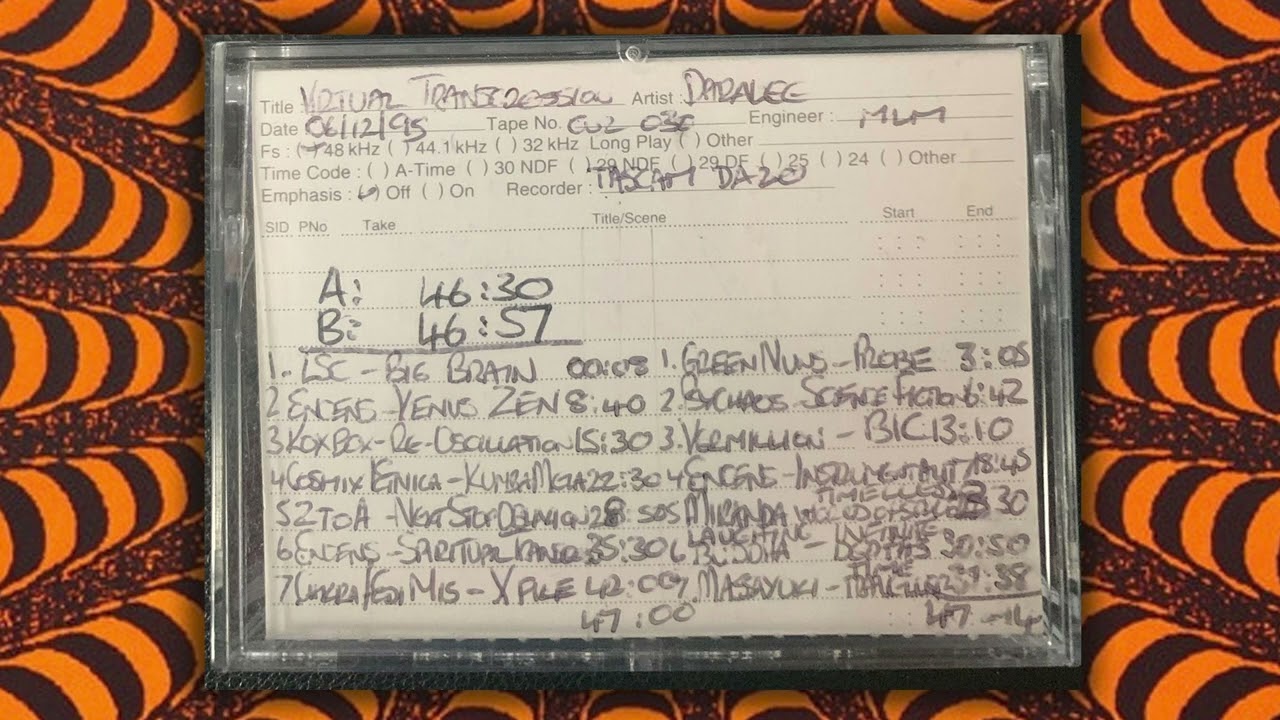 Title VIRTUAL TRANSGRESSION Artist : DARALEE
Date 06/12/95 Tape No. Engineer : MLM
Fs : ( ) 48 kHz ( ) 44.1 kHz ( ) 32 kHz Long Play ( ) Other
Time Code : ( ) A-Time ( ) 30 NDF ( ) 29 NDF ( ) 29 DF ( ) 25 ( ) 24 ( ) Other
Emphasis : ( ) Off ( ) On Recorder : TASCAM DA20
SID PNo Take Title/Scene Start End
A: 46:30
B: 46:57
1. LSC - BIG BRAIN 00:08 1. GREEN NUNS - PROBE 3:05
2 ENCENS - VENUS ZEN 8:40 2. SCIENCE FICTION 6:42
3 KOXBOX - RE-OSCILLATION 15:30 3. VERMILLION - BIC 13:10
4 COSMIX ETNICA - KUMBA MELA 22:30 4 ENCENS - 18:45
5 2 TO A - NEXT STOP 5 MIRANDA TIMELESS 30
6 ENCENS - SPIRITUAL 35:30 6 LAUGHING BUDDHA - INFINITE DEPTHS 30:50
7 CHAKRA/EDI MIS - X PILE 42:00 7. MASAYUKI - TIME 37:38
47:00 47 -14